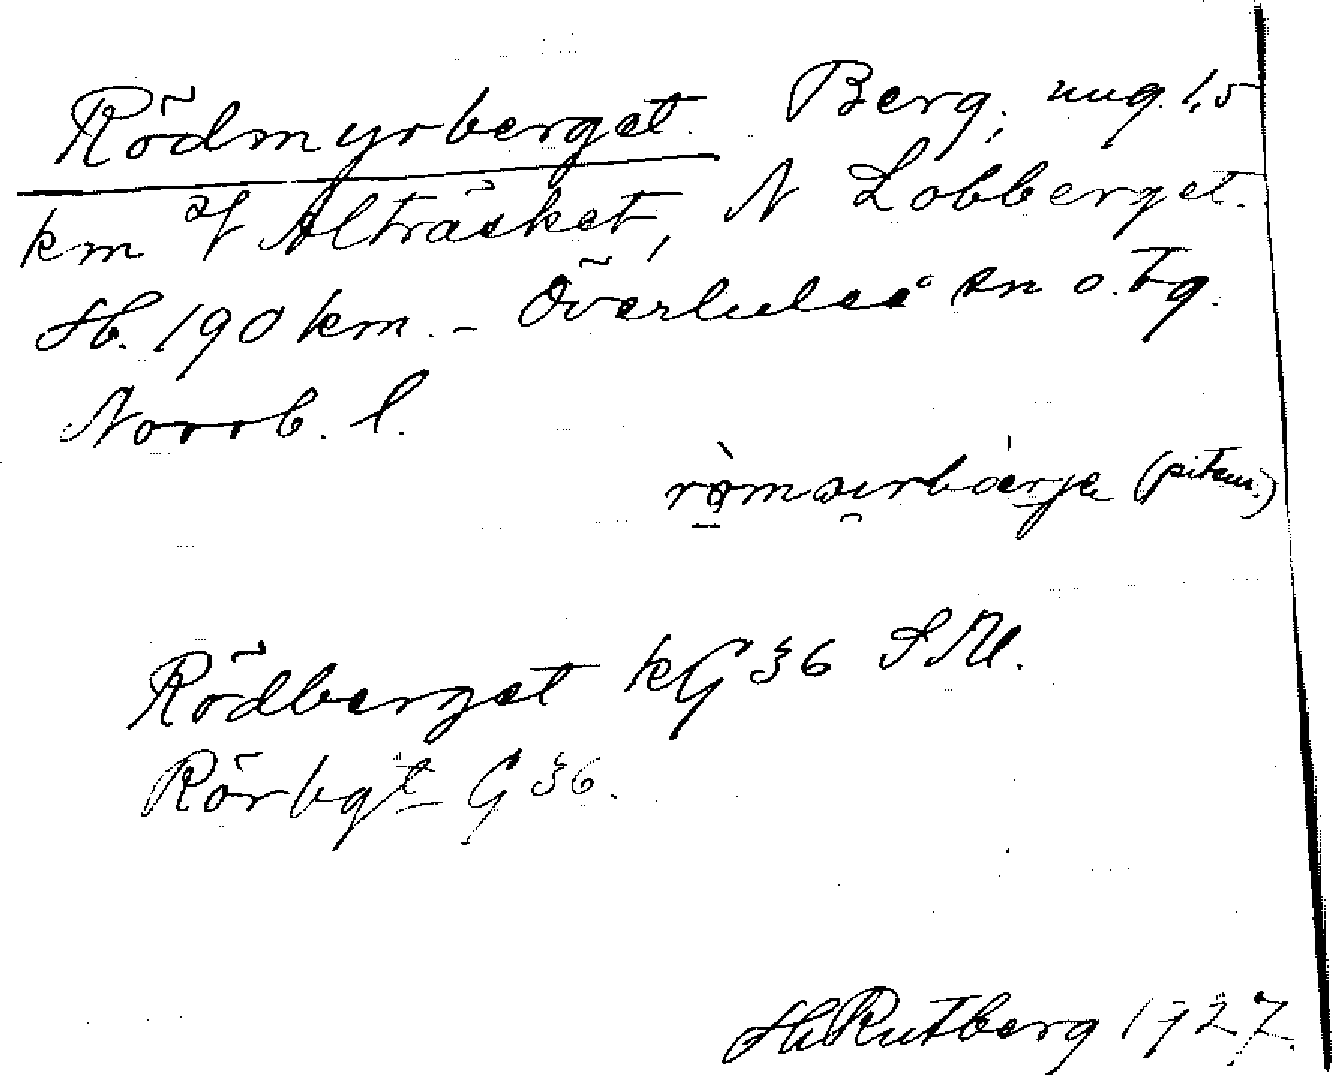 Rödmyrberget. Berg, ung. 1,5
km Alträsket, N Lobberget.
Hb. 190 km. - Överluleå sn o. tg.
Norrb. l.
(pitem.)
Rödberget kG 36 S.M.
Rörbgt G 36.
H. Rutberg 1927.